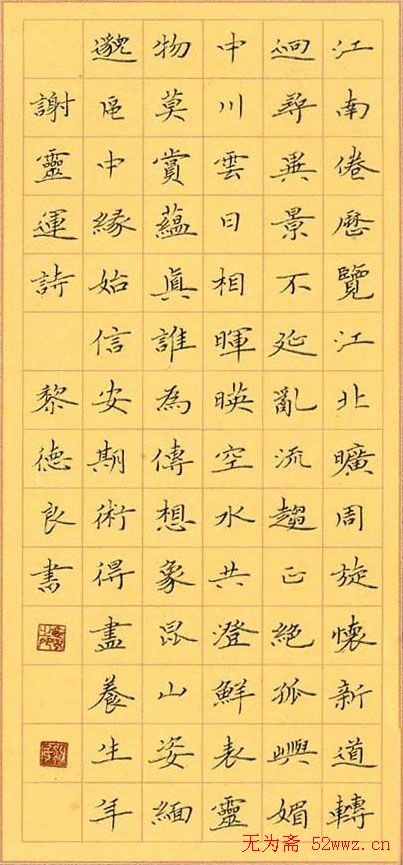 江南倦厯覽江北曠周旋懷新道轉
迴尋異景不延亂流趨正絕孤嶼媚
中川雲日相暉暎空水共澄鮮表靈
物莫賞蘊眞誰為傳想象昆山姿緬
邈區中緣始信安期術得盡養生年
謝靈運詩 黎德良書
无为斋 52wwz.cn